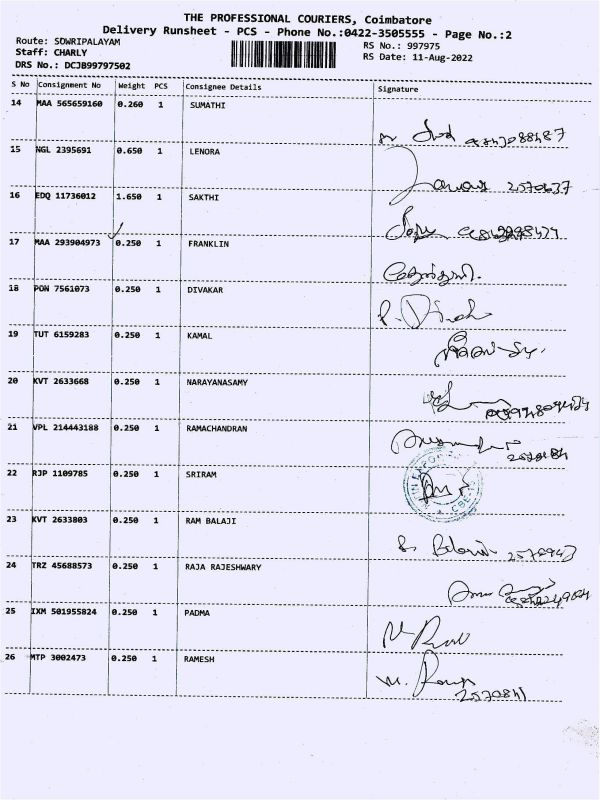 THE PROFESSIONAL COURIERS, Coimbatore
Delivery Runsheet - PCS - Phone No.:0422-3505555 - Page No.:2
Route: SOWRIPALAYAM
Staff: CHARLY
DRS No.: DCJB99797502
RS No.: 997975
RS Date: 11-Aug-2022
S No Consignment No Weight PCS Consignee Details Signature
14 MAA 565659160 0.260 1 SUMATHI
15 NGL 2395691 0.650 1 LENORA
16 EDQ 11736012 1.650 1 SAKTHI
17 MAA 293904973 0.250 1 FRANKLIN
18 PON 7561073 0.250 1 DIVAKAR
19 TUT 6159283 0.250 1 KAMAL
20 KVT 2633668 0.250 1 NARAYANASAMY
21 VPL 214443188 0.250 1 RAMACHANDRAN
22 RJP 1109785 0.250 1 SRIRAM
23 KVT 2633803 0.250 1 RAM BALAJI
24 TRZ 45688573 0.250 1 RAJA RAJESHWARY
25 IXM 501955824 0.250 1 PADMA
26 MTP 3002473 0.250 1 RAMESH
2570841